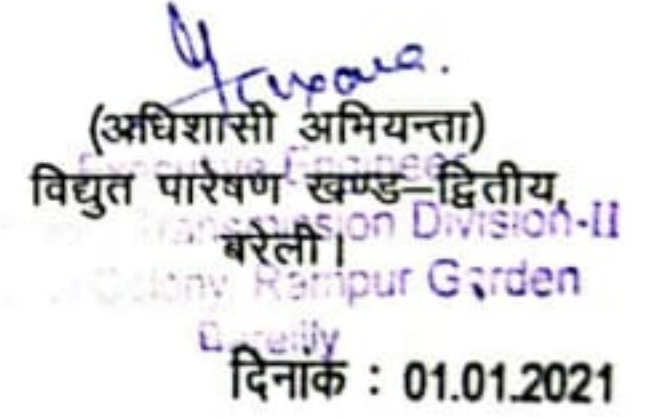 (अधिशासी अभियन्ता)
Executive Engineer
विद्युत पारेषण खण्ड–द्वितीय,
Transmission Division-II
बरेली।
Colony, Rampur Garden
Bareilly
दिनांक : 01.01.2021